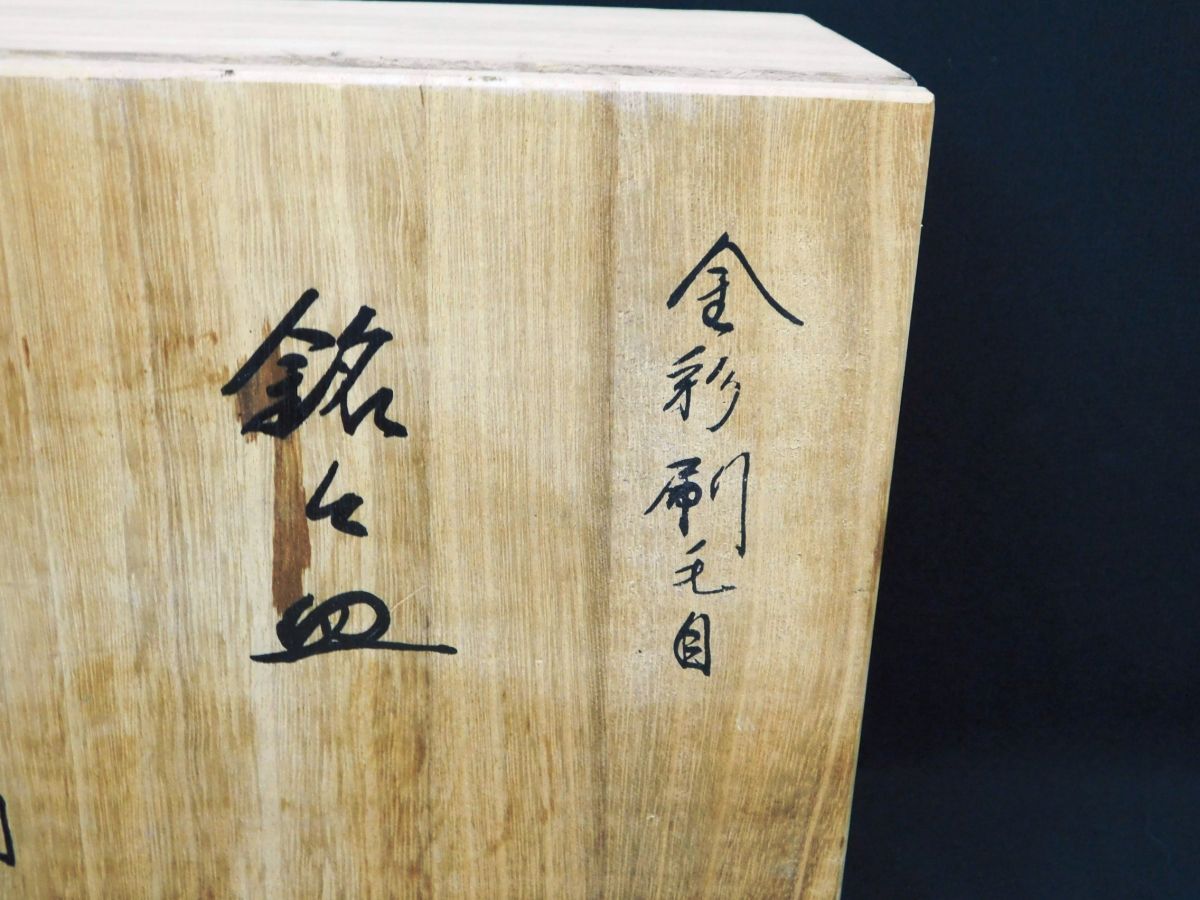 金彩刷毛目
銘々皿